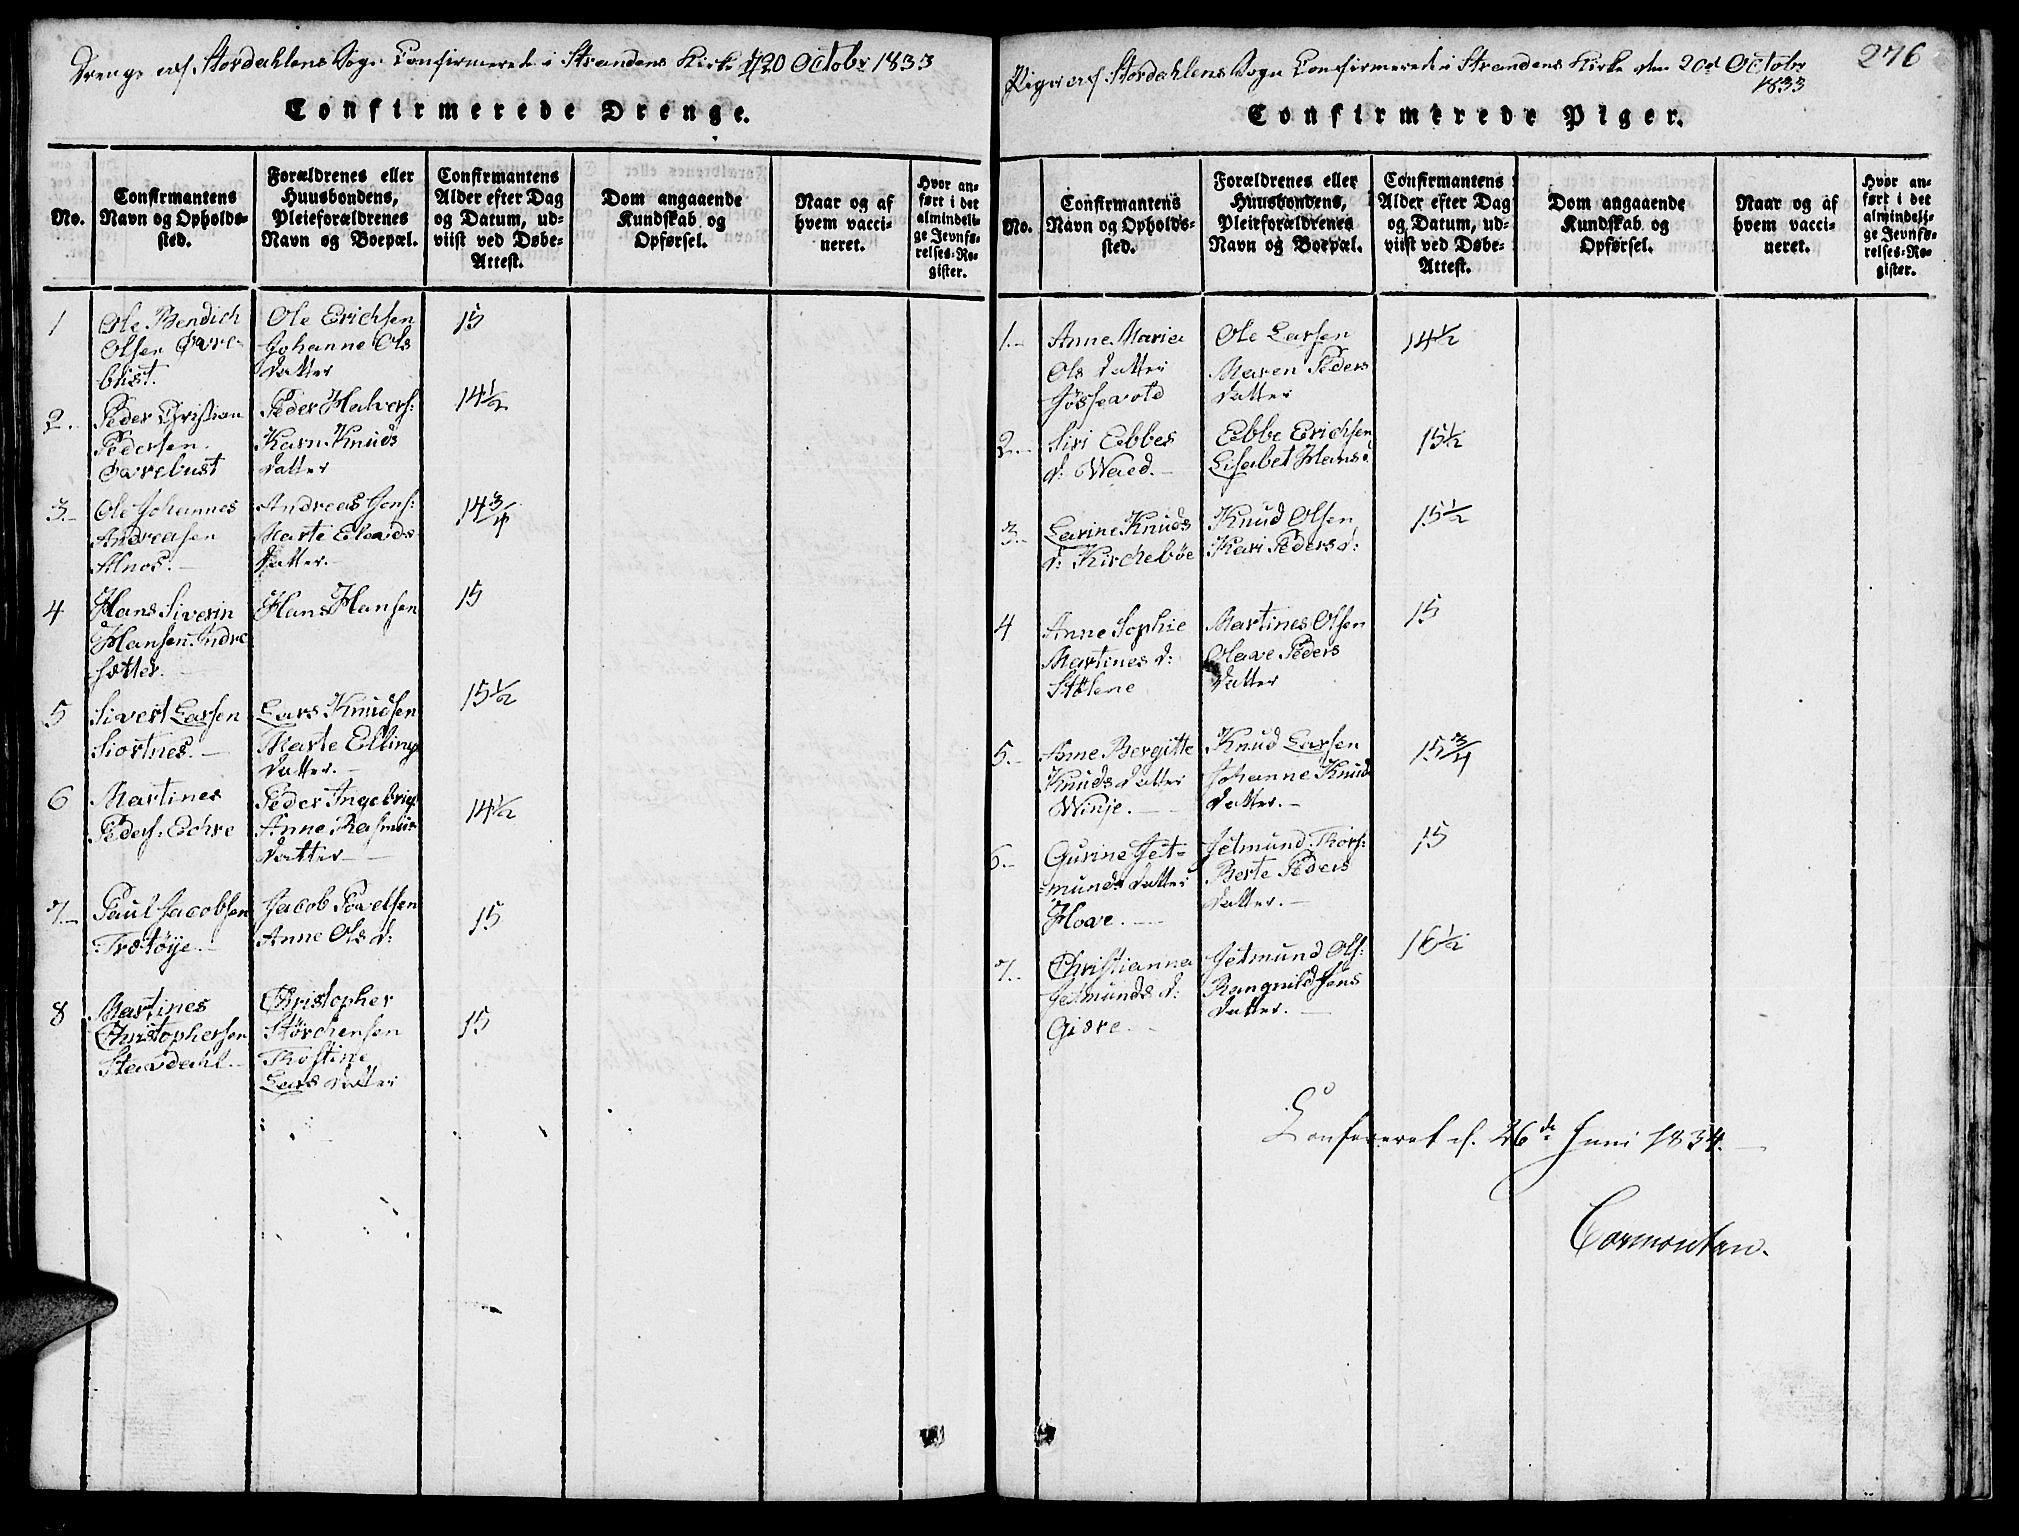 Drenge af Stordahlens Sogn Confirmerede i Strandens Kirke d 20 Octobr 1833
Confirmerede Drenge.
No.
Confirmantens
Navn og Opholds-
sted.
Forældrenes eller
Huusbondens,
Pleieforældrenes
Navn og Boepæl.
Confirmantens
Alder efter Dag
og Datum, ud-
viist ved Døbe-
Attest.
Dom angaaende
Kundskab og
Opførsel.
Naar og af
hvem vacci-
neret.
Hvor an-
ført i det
almindeli-
ge Jevnfø-
relses-Re-
gister.
1
Ole Bendich
Olsen Øvre-
bust.
Ole Erichsen
Johanne Ols
datter
15
2.
Peder Christian
Pedersen
Øvrebust
Peder Halvers:
Karn Knuds
datter
14 1/2
3.-
Ole Johannes
Andreasen
Alnos:
Andreas Jons:
Marte Elends
datter.-
14 3/4
4
Hans Siverin
Hansen Indre
Sætter.
Hans Hansen
15
5
Sivert Larsen
Siortnes.-
Lars Knudsen
Marte Elling
datter.-
15 1/2
6
Martines
Peders: Edhre
Peder Ingebrig
Anne Rasmus
datter
14 1/2
7.-
Paul Jacobsen
Trætöye.-
Jacob Povelsen
Anne Ols d:
15
8
Martines
Christophersen
Stavdahl.-
Christopher
Störchersen
Thostine
Lars datter
15
276
Piger af Stordahlens Sogn Confirmerede i Strandens Kirke den 20d Octobr
1833
Confirmerede Piger.
No.
Confirmantens
Navn og Opholds-
sted.
Forældrenes eller
Huusbondens,
Pleieforældrenes
Navn og Boepæl.
Confirmantens
Alder efter Dag
og Datum, ud-
viist ved Døbe-
Attest.
Dom angaaende
Kundskab og
Opførsel.
Naar og af
hvem vacci-
neret.
Hvor an-
ført i det
almindeli-
ge Jevnfø-
relses-Re-
gister.
1.-
Anne Maria
Ols datter
Jössevold
Ole Larsen
Maren Peders
datter
14 1/2
2.-
Siri Ebbes
d: Waed.-
Ebbe Erichsen
Lisabet Hans
15 1/2
3.-
Larine Knuds
d: Kirchebøe
Knud Olsen
Kari Peders d:
15 1/2
4
Anne Sophie
Martines d:
Stölene
Martines Olsen
Olave Peders
datter
15
5.-
Anne Bergitte
Knuds datter
Winje.-
Knud Larsen
Johanne Knud
datter.-
15 3/4
6.-
Gurine Jet-
munds datter
Hove.-
Jetmund Thors:
Berte Peders
datter.-
15
7.-
Christianna
Jetmunds d:
Giære.-
Jetmund Ols:
Rangnild Jens
datter.-
16 1/2
Confereret d. 26de Juni 1834.-
Cormontan.